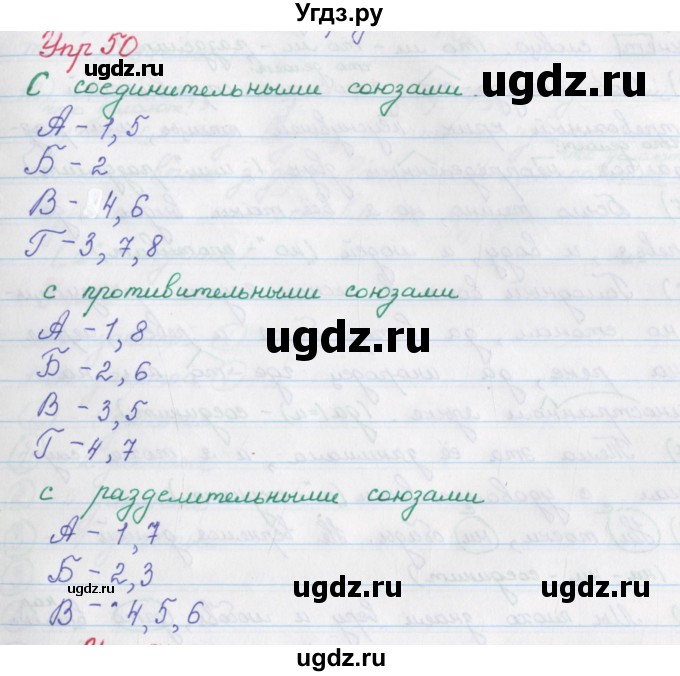 Угдз.ру
Упр 50
ugdz.ru
ugdz.ru
С соединительными союзами
А - 1, 5
Б - 2
В - 4, 6
Г - 3, 7, 8
с противительными союзами
А - 1, 8
ugdz.ru
ugdz.ru
Б - 2, 6
В - 3, 5
Г - 4, 7
с разделительными союзами
А - 1, 7
Б - 2, 3
ugdz.ru
ugdz.ru
В - 4, 5, 6
ugdz.ru